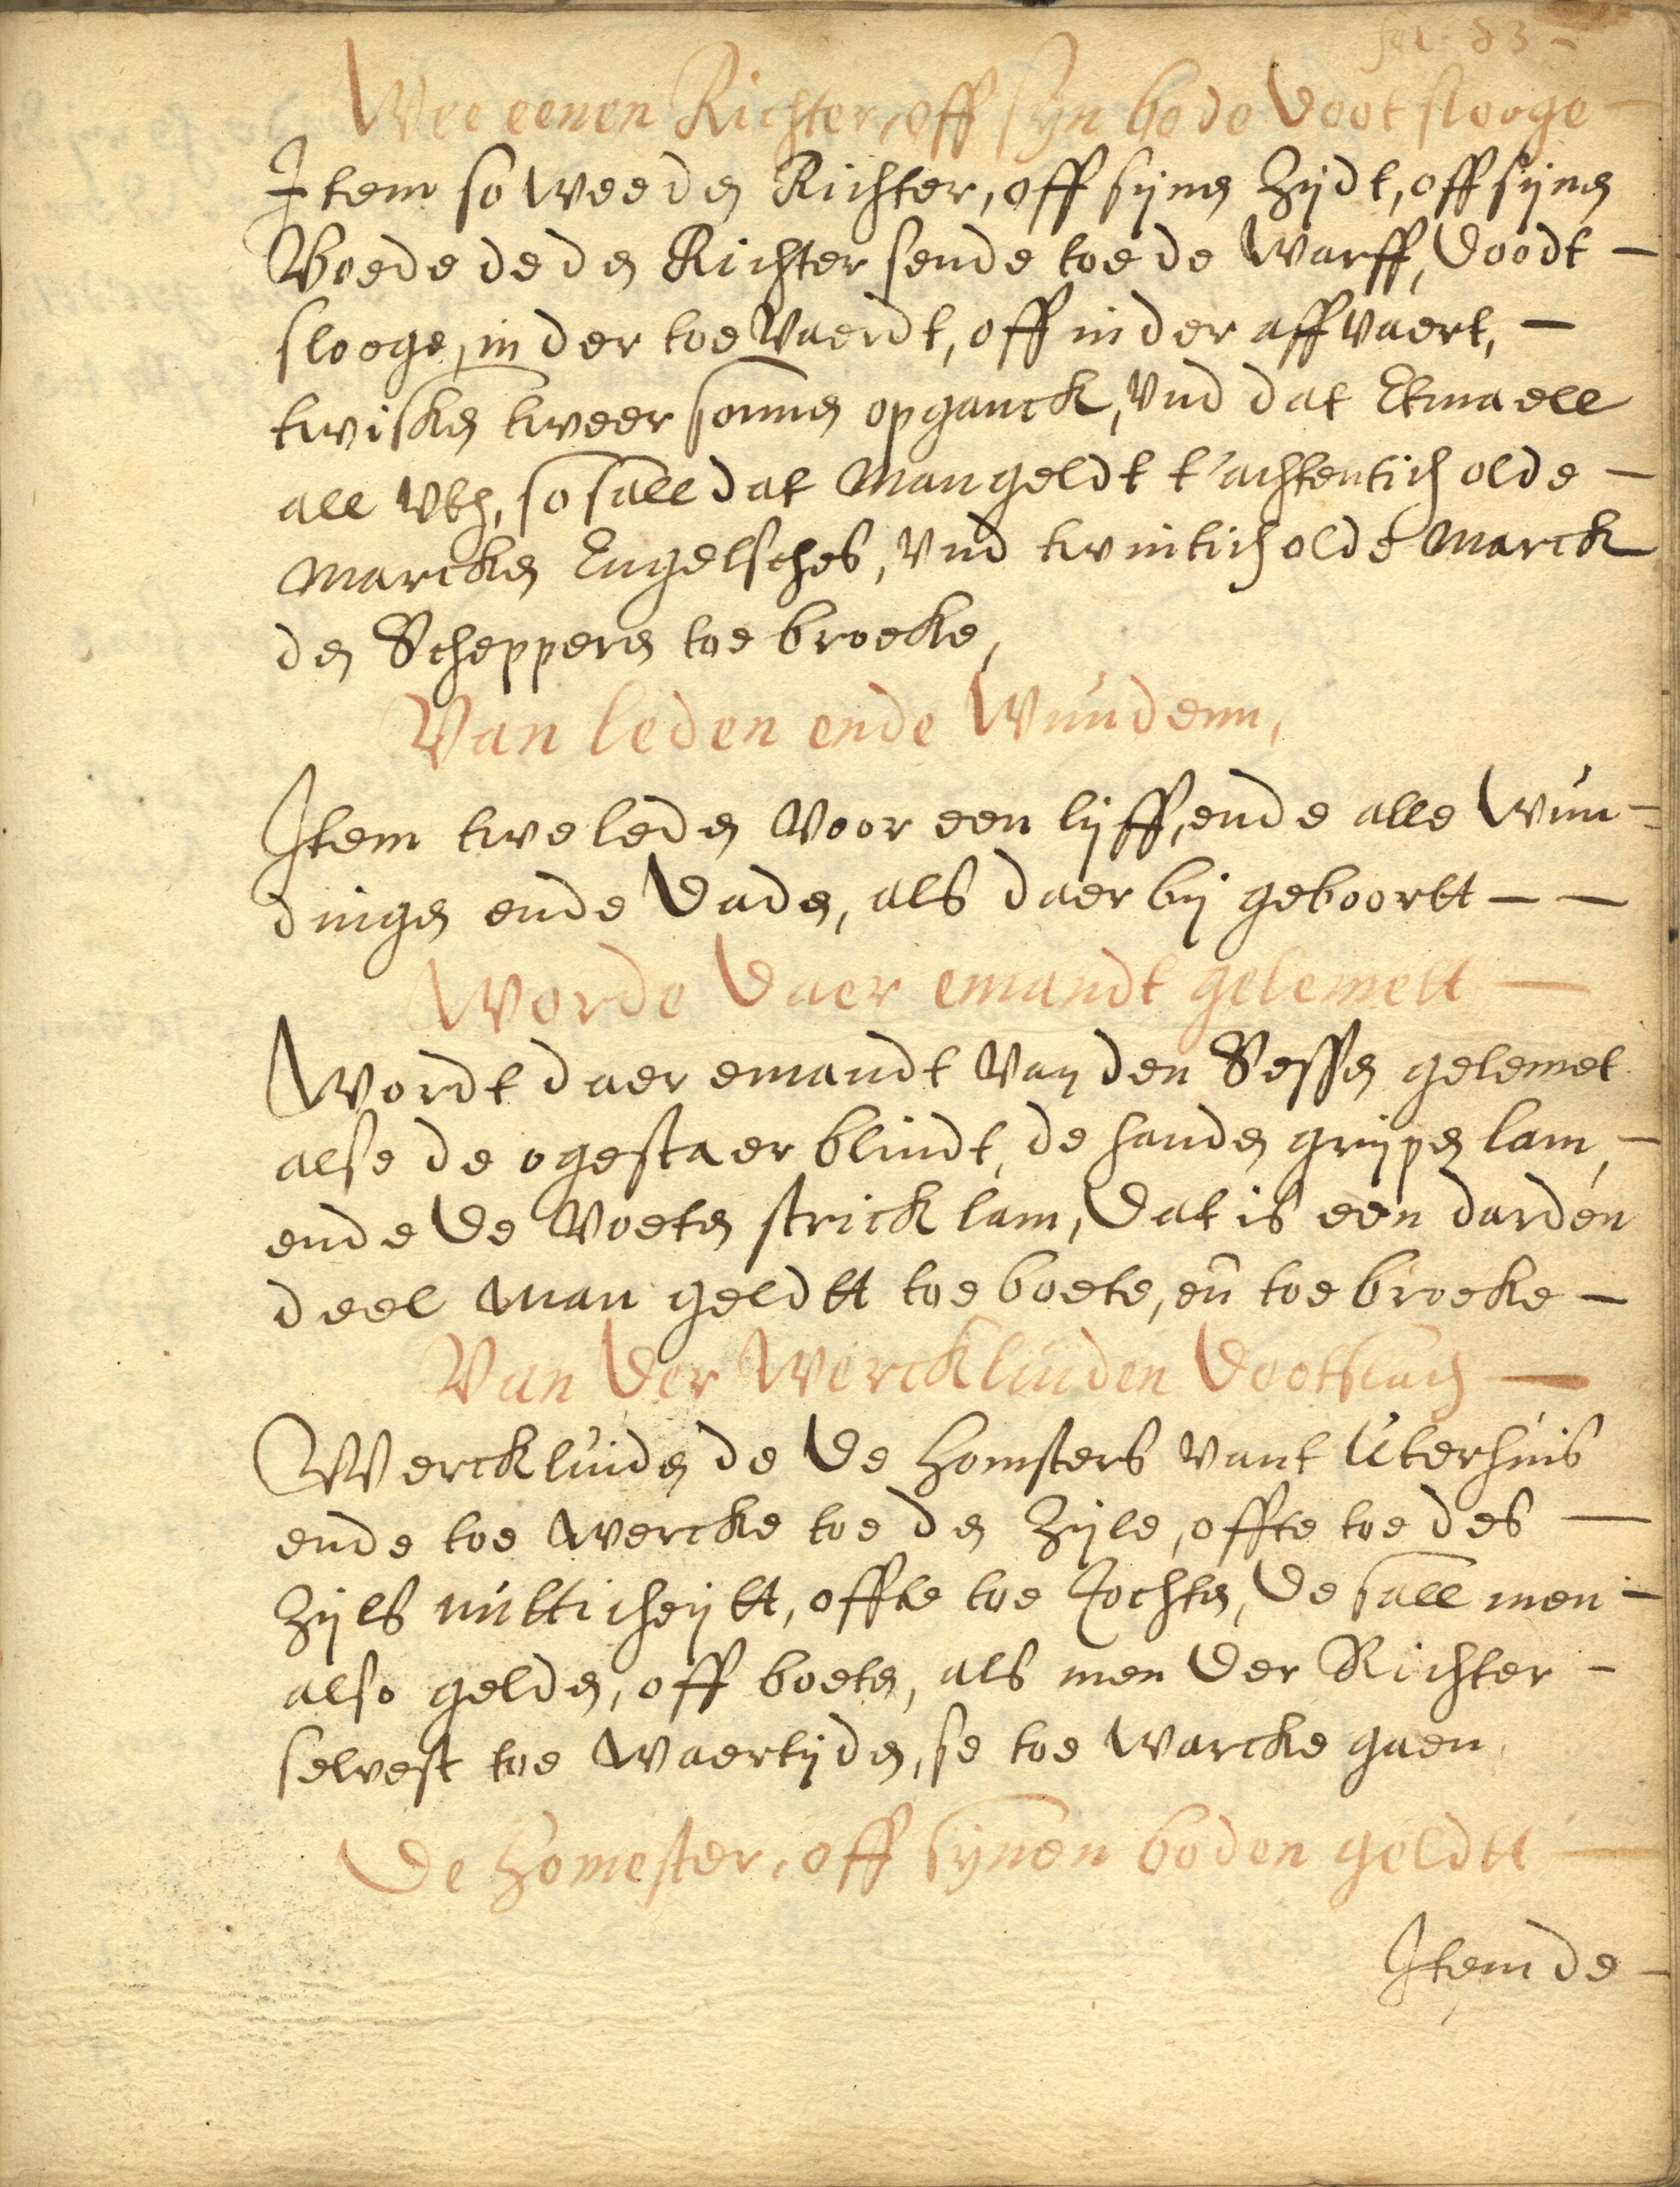 fol. 83 -
Wee eenen Richter, off syn bode Doot slooge
Item so wee den Richter, off synen Zijdt, off synen
Boede de den Richter sende toe de Warff, Doodt -
slooge, in der toe Vaerdt, off in der aff vaert, -
twisken tweer sonnen opganck, Vnd dat Etmaell
all Vth, so sall dat Mangeldt t'achtentich olde -
Marcken Engelsches, Vnd twintich olde Marck
den Schepperen toe broecke,
Van leden ende Wundenn,
Item twe leden Voor een lijff, ende alle Wun=
dingen ende Daden, als daer bij geboortt - -
Worde Daer emandt gelemett -
Wordt daer emandt Van den Sessen gelemet
alse de ogestaer blindt, de handen grypen lam, -
ende De Voeten strick lam, Dat is een darden
deel Man geldtt toe boete, en̄ toe broecke -
Van Der Wercklüden Dootslach -
Wercklüiden de De Homsters Vant Üterhüis
ende toe wercke toe den Zijle, offte toe des -
Zijls nüttichejtt, offte toe Tochten, De sall men -
also gelden, off boeten, als men Der Richter -
selvest toe Waertijden, se toe Warcke gaen,
De Homester, off synen boden geldtt -
Item de -